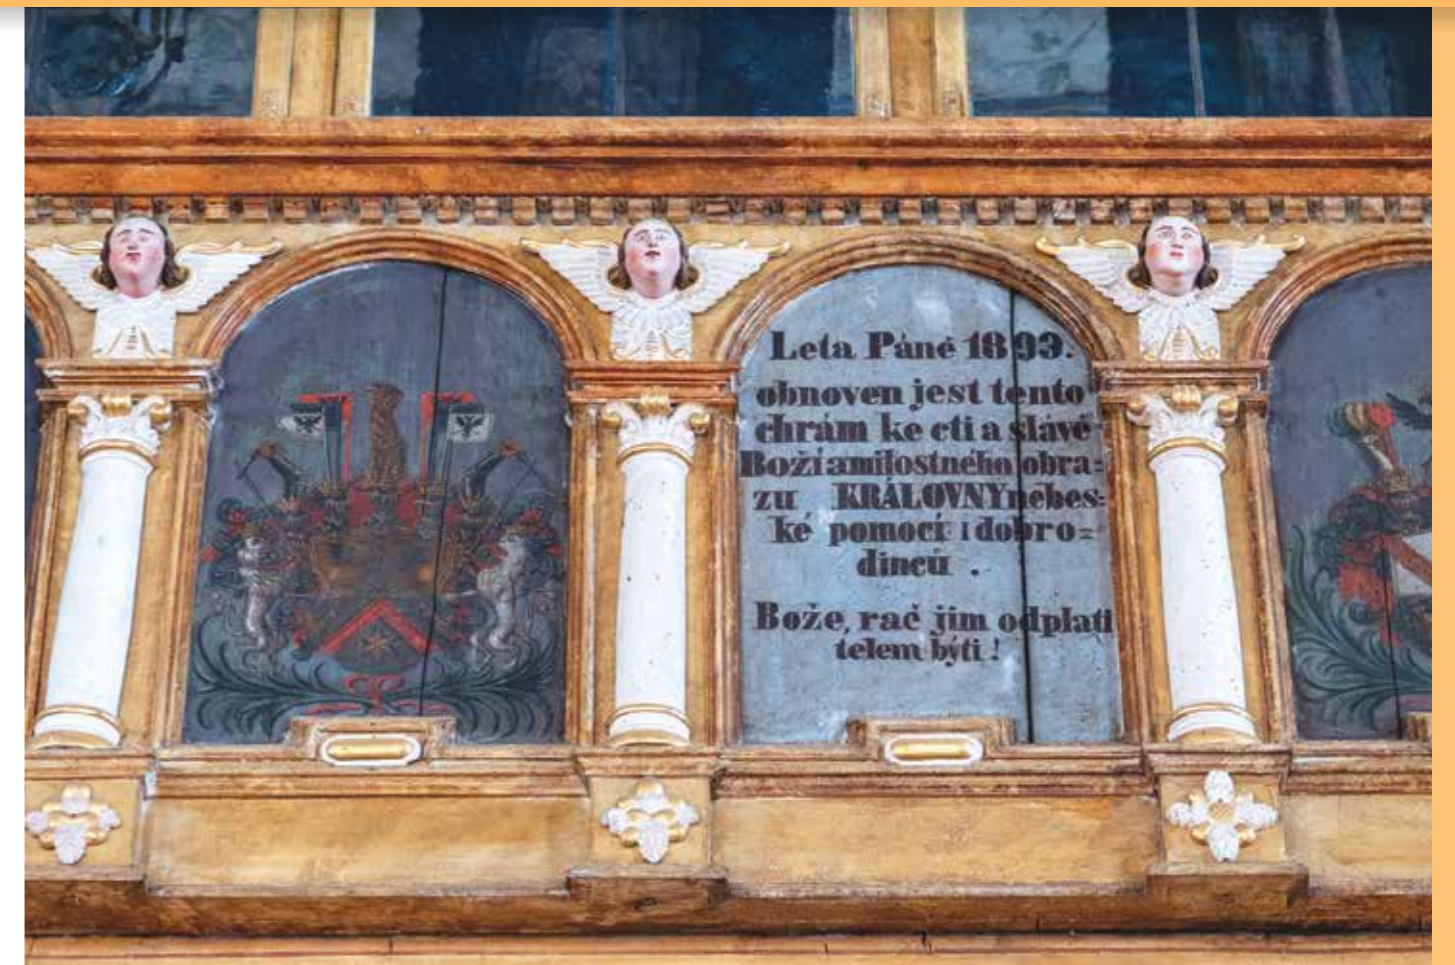 Leta Páně 1893.
obnoven jest tento
chrám ke cti a slávě
Boží a milostného obra=
zu KRÁLOVNY nebes=
ké pomocí i dobro=
dinců .
Bože, rač jim odplati
telem býti !